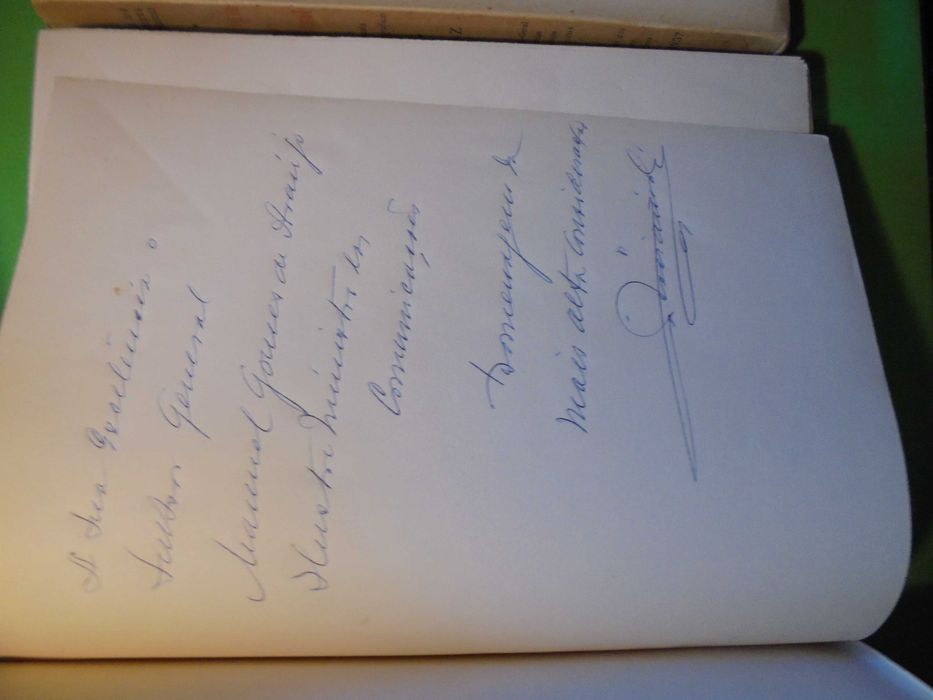 A Sua Excelência o
Senhor General
Manuel Gomes de Araújo
Ilustre Ministro das
Comunicações
Homenagem da
mais alta consideração